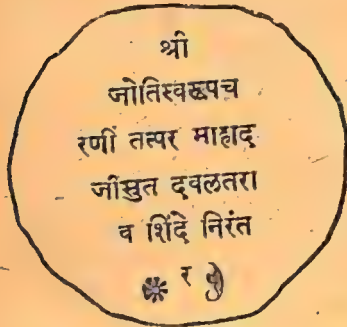 श्री
जोतिस्वरूपच
रणीं तत्पर माहाद
जीसुत दवलतरा
व शिंदे निरंत
र